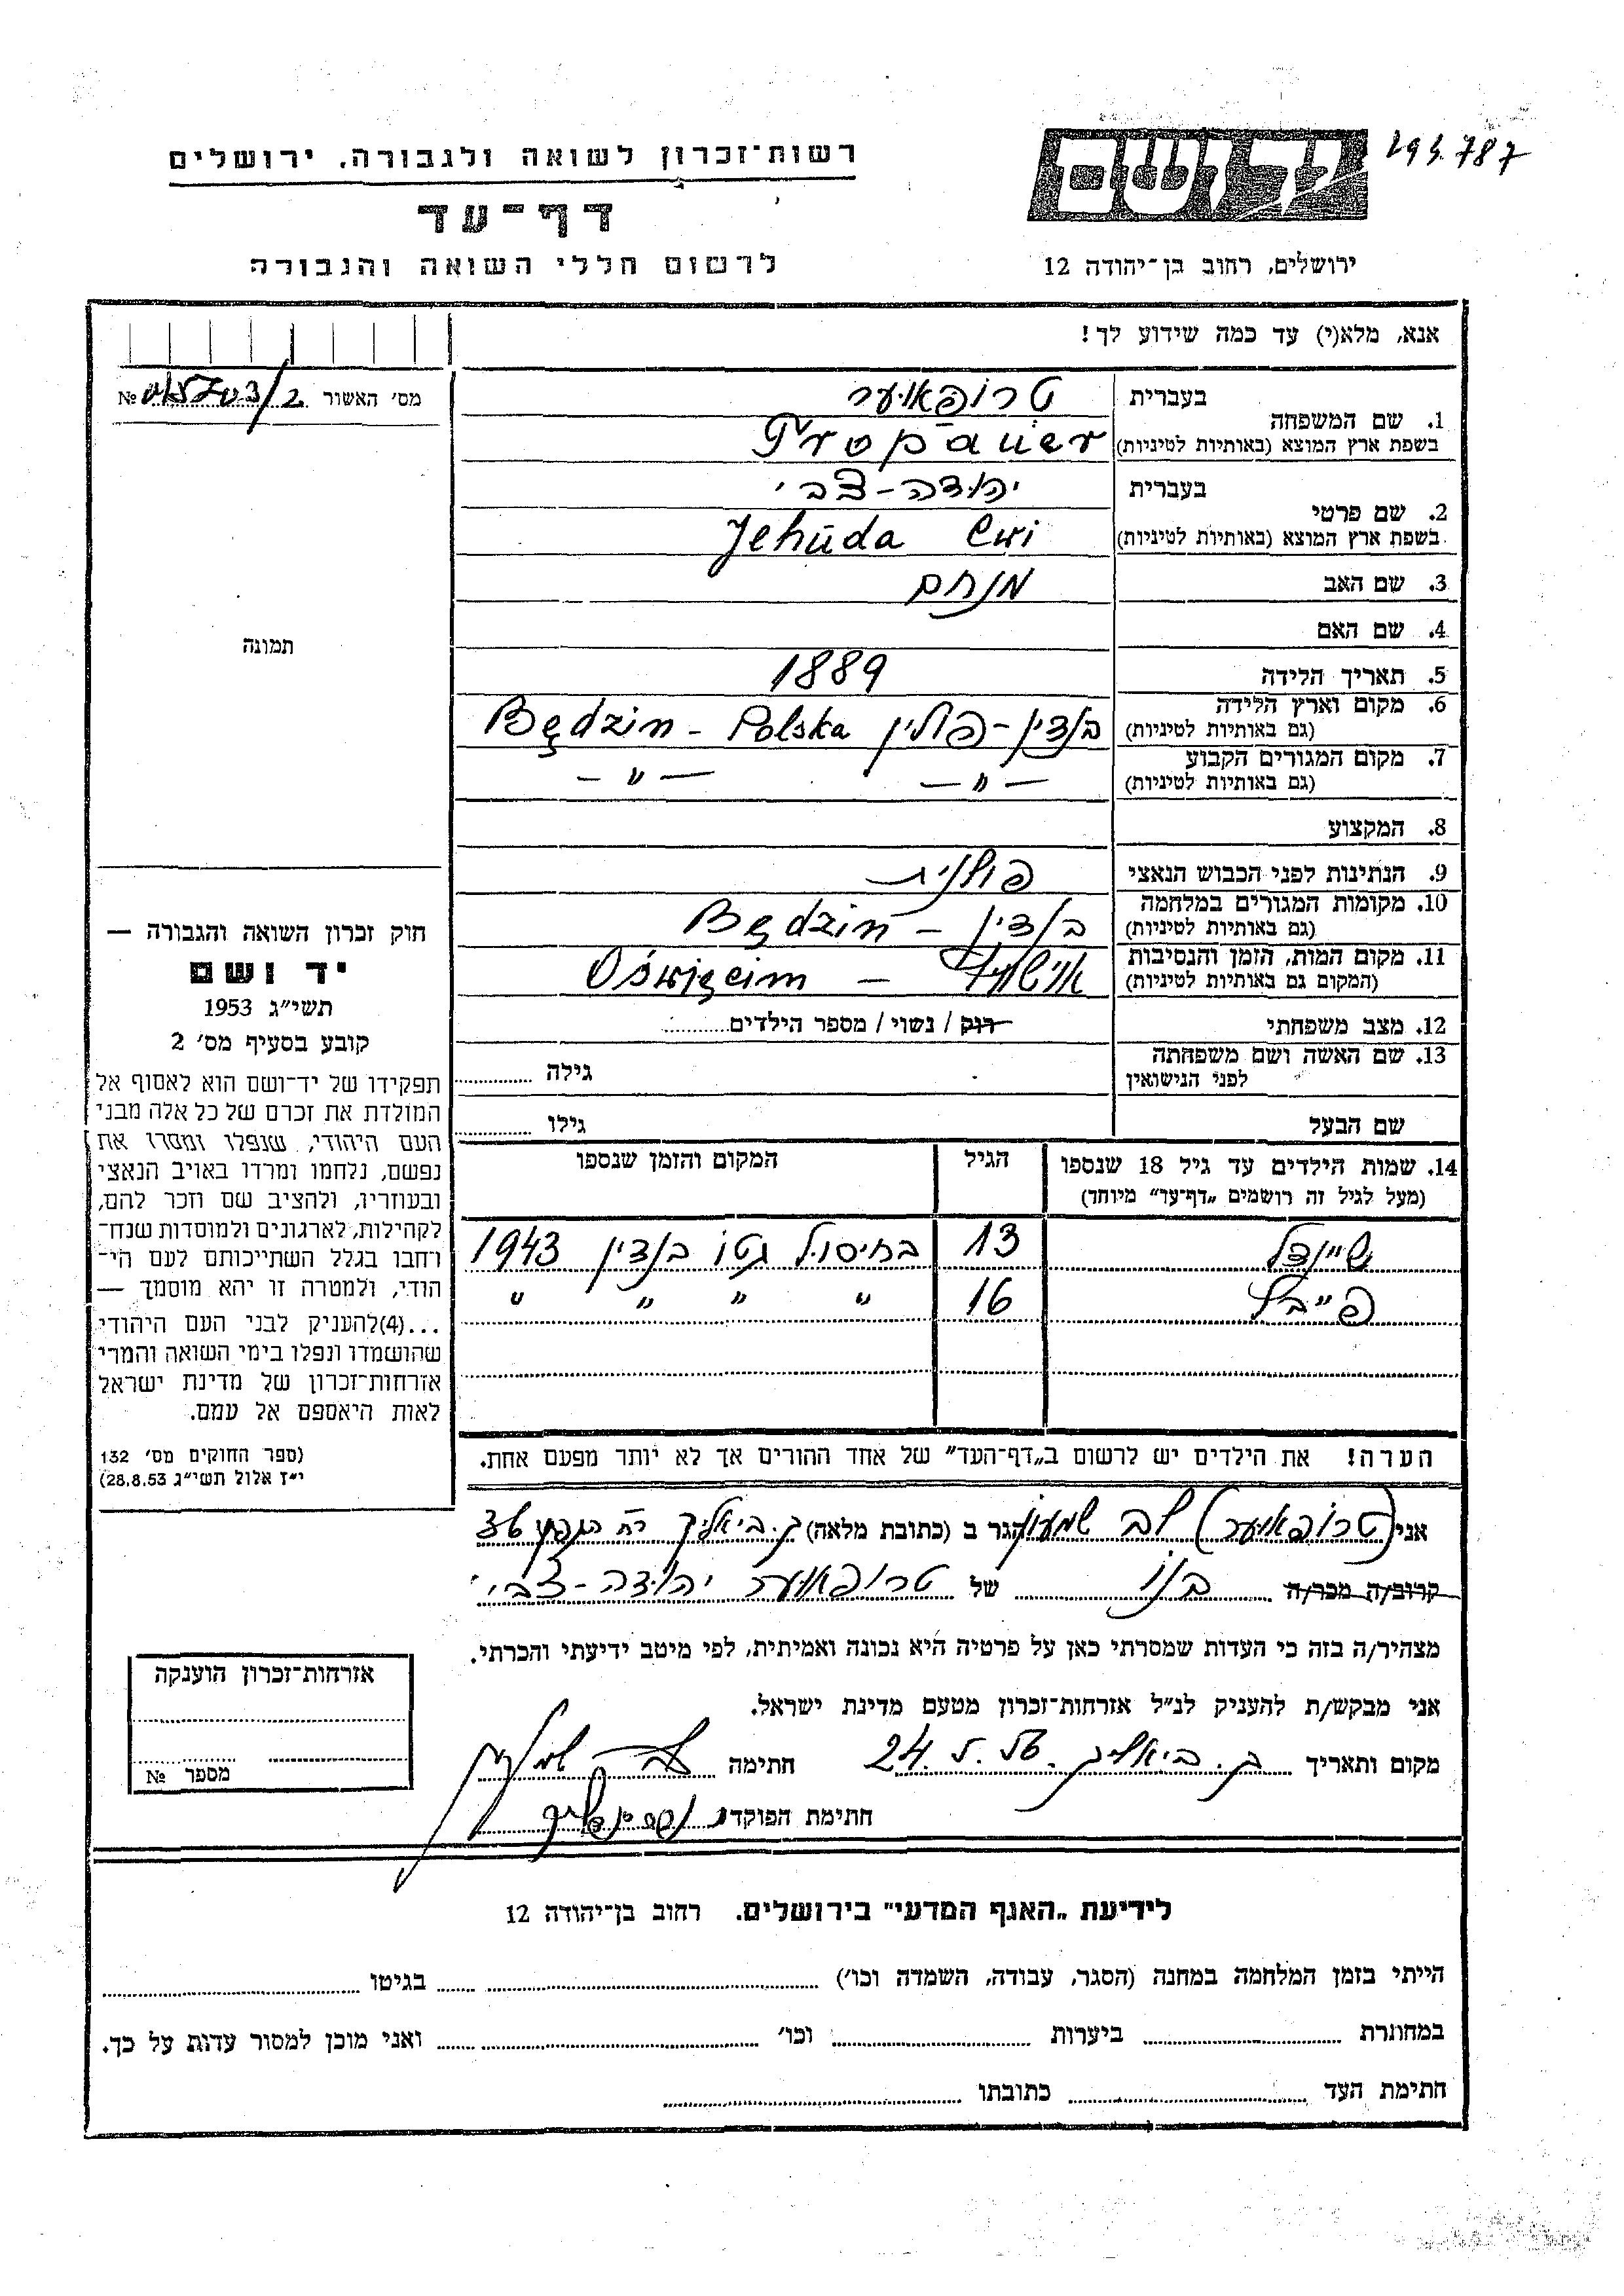 193.787
רשות־זכרון לשואה ולגבורה, ירושלים
יד ושם
דף־עד
לרשום חללי השואה והגבורה
ירושלים, רחוב בן־יהודה 12
אנא, מלא(י) עד כמה שידוע לך!
מס׳ האשור №
1. שם המשפחה
בעברית טרופאוער
בשפת ארץ המוצא (באותיות לטיניות) Tropauer
2. שם פרטי
בעברית יהודה-צבי
בשפת ארץ המוצא (באותיות לטיניות) Jehuda Cwi
3. שם האב מנחם
4. שם האם
5. תאריך הלידה 1889
6. מקום וארץ הלידה
(גם באותיות לטיניות) בנדין-פולין Będzin - Polska
7. מקום המגורים הקבוע
(גם באותיות לטיניות) -"- -"-
8. המקצוע
9. הנתינות לפני הכבוש הנאצי פולנית
10. מקומות המגורים במלחמה
(גם באותיות לטיניות) בנדין - Będzin
11. מקום המות, הזמן והנסיבות
(המקום גם באותיות לטיניות) - Oświęcim
12. מצב משפחתי רוק / נשוי / מספר הילדים
13. שם האשה ושם משפחתה
לפני הנישואין גילה
שם הבעל גילו
14. שמות הילדים עד גיל 18 שנספו הגיל המקום והזמן שנספו
(מעל לגיל זה רושמים „דף־עד״ מיוחד)
שיינדל 13 בחיסול גטו בנדין 1943
פייבל 16 " " " "
הערה! את הילדים יש לרשום ב„דף־העד״ של אחד ההורים אך לא יותר מפעם אחת.
תמונה
חוק זכרון השואה והגבורה —
יד ושם
תשי״ג 1953
קובע בסעיף מס׳ 2
תפקידו של יד־ושם הוא לאסוף אל
המולדת את זכרם של כל אלה מבני
העם היהודי, שנפלו ומסרו את
נפשם, נלחמו ומרדו באויב הנאצי
ובעוזריו, ולהציב שם וזכר להם,
לקהילות, לארגונים ולמוסדות שנח־
רחבו בגלל השתייכותם לעם הי־
הודי, ולמטרה זו יהא מוסמך —
...(4)להעניק לבני העם היהודי
שהושמדו ונפלו בימי השואה והמרי
אזרחות־זכרון של מדינת ישראל
לאות היאספם אל עמם.
(ספר החוקים מס׳ 132
י״ז אלול תשי״ג 28.8.53)
אני (טרופאוער) לב שמעון הגר ב (כתובת מלאה) ק. ביאליק רח 36
קרוב/ה מכר/ה בנו של טרופאוער יהודה-צבי
מצהיר/ה בזה כי העדות שמסרתי כאן על פרטיה היא נכונה ואמיתית, לפי מיטב ידיעתי והכרתי.
אני מבקש/ת להעניק לנ״ל אזרחות־זכרון מטעם מדינת ישראל.
מקום ותאריך ק. ביאליק 24. חתימה לב שמעון
חתימת הפוקד
אזרחות־זכרון הוענקה
מספר №
לידיעת „האגף המדעי״ בירושלים. רחוב בן־יהודה 12
הייתי בזמן המלחמה במחנה (הסגר, עבודה, השמדה וכו׳) בגיטו
במחתרת ביערות וכו׳ ואני מוכן למסור עדות על כך.
חתימת העד כתובתו